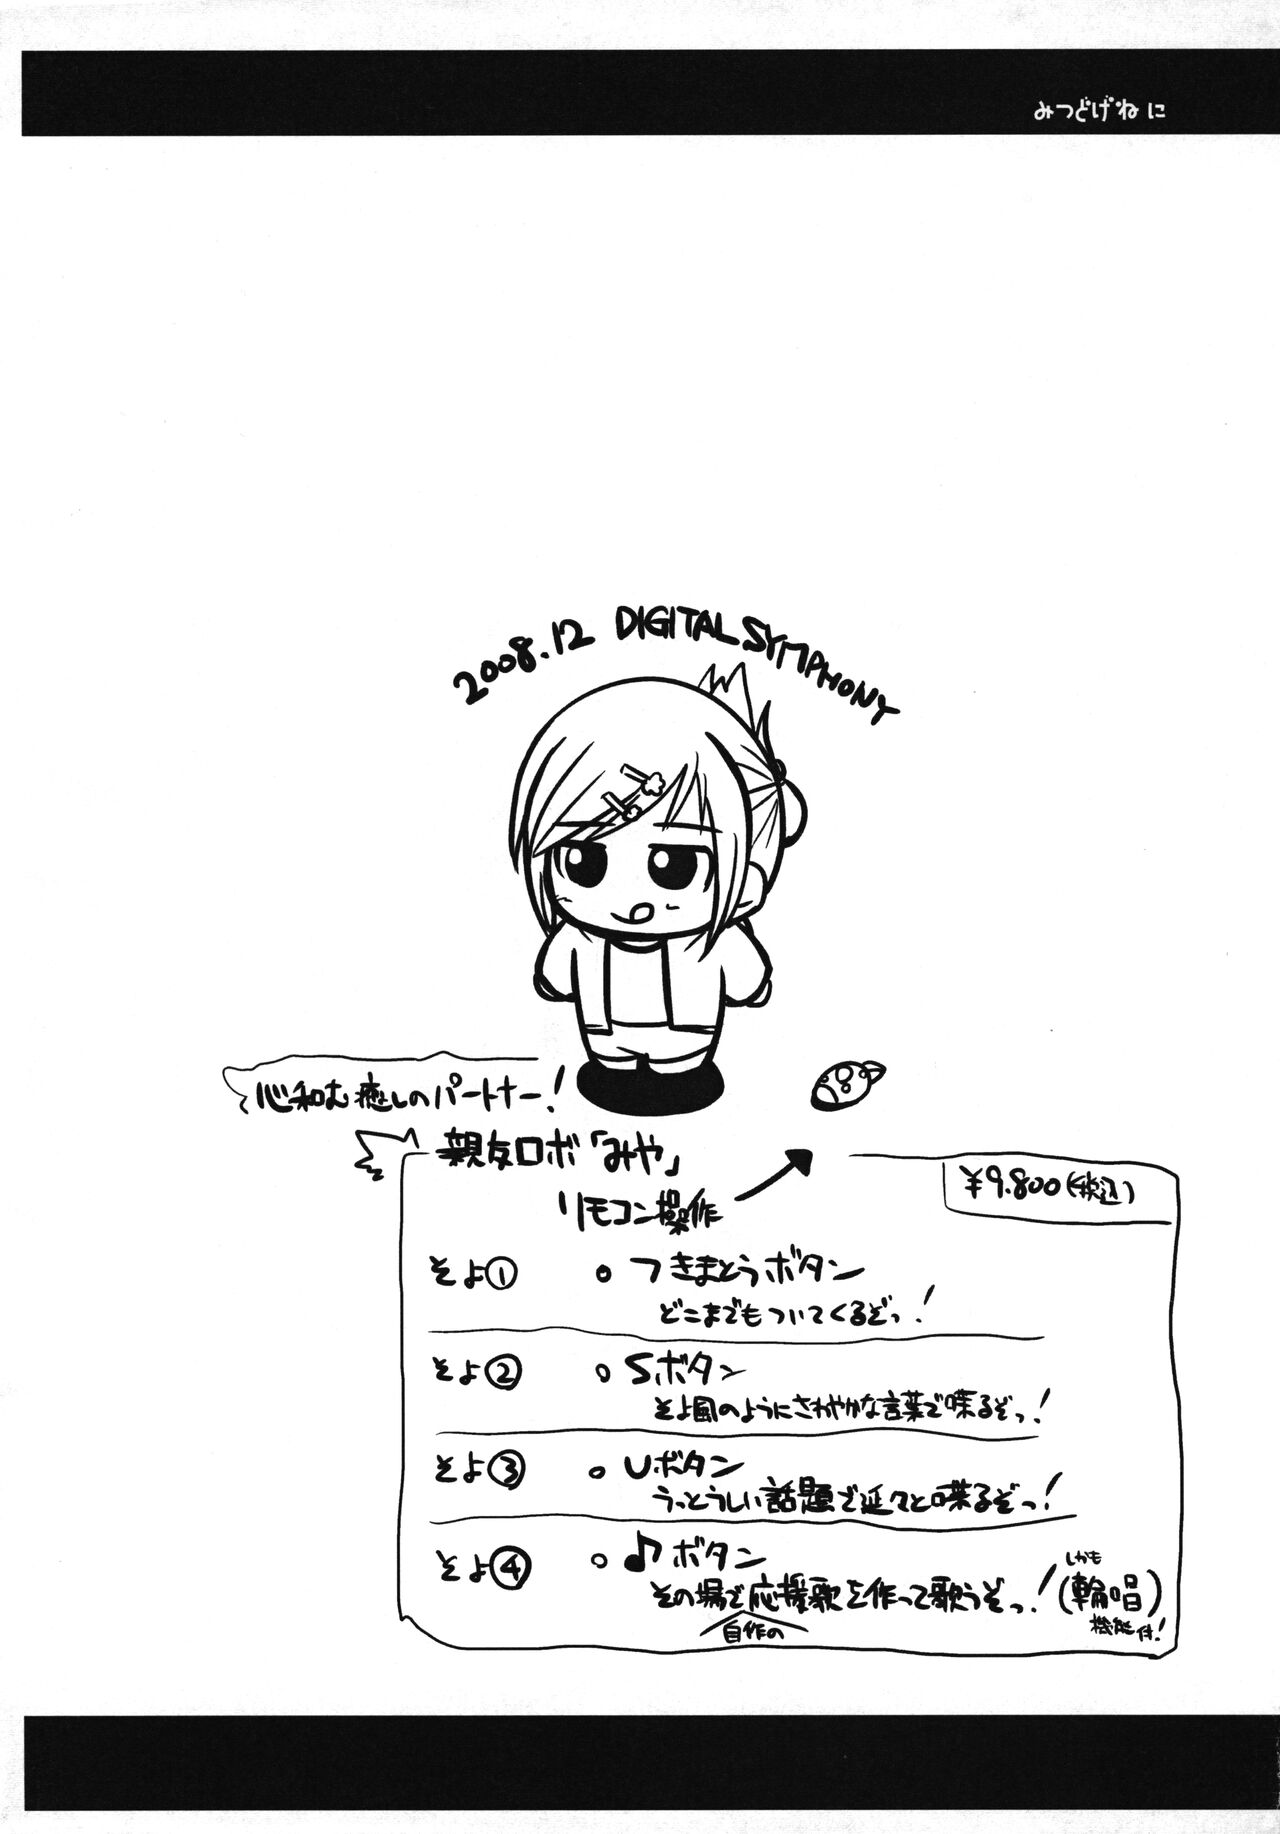 みつどげねに
2008.12 DIGITAL SYMPHONY
心和む癒しのパートナー!
親友ロボ「みや」
リモコン操作
¥9.800(税込)
そよ① 。つきまとうボタン
どこまでもついてくるぞっ!
そよ② 。Sボタン
そよ風のようにさわやかな言葉で喋るぞっ!
そよ③ 。Uボタン
うっとうしい話題で延々と喋るぞっ!
そよ④ 。♪ボタン
その場で応援歌を作って歌うぞっ!
自作の
しかも
(輪唱)
機能付!